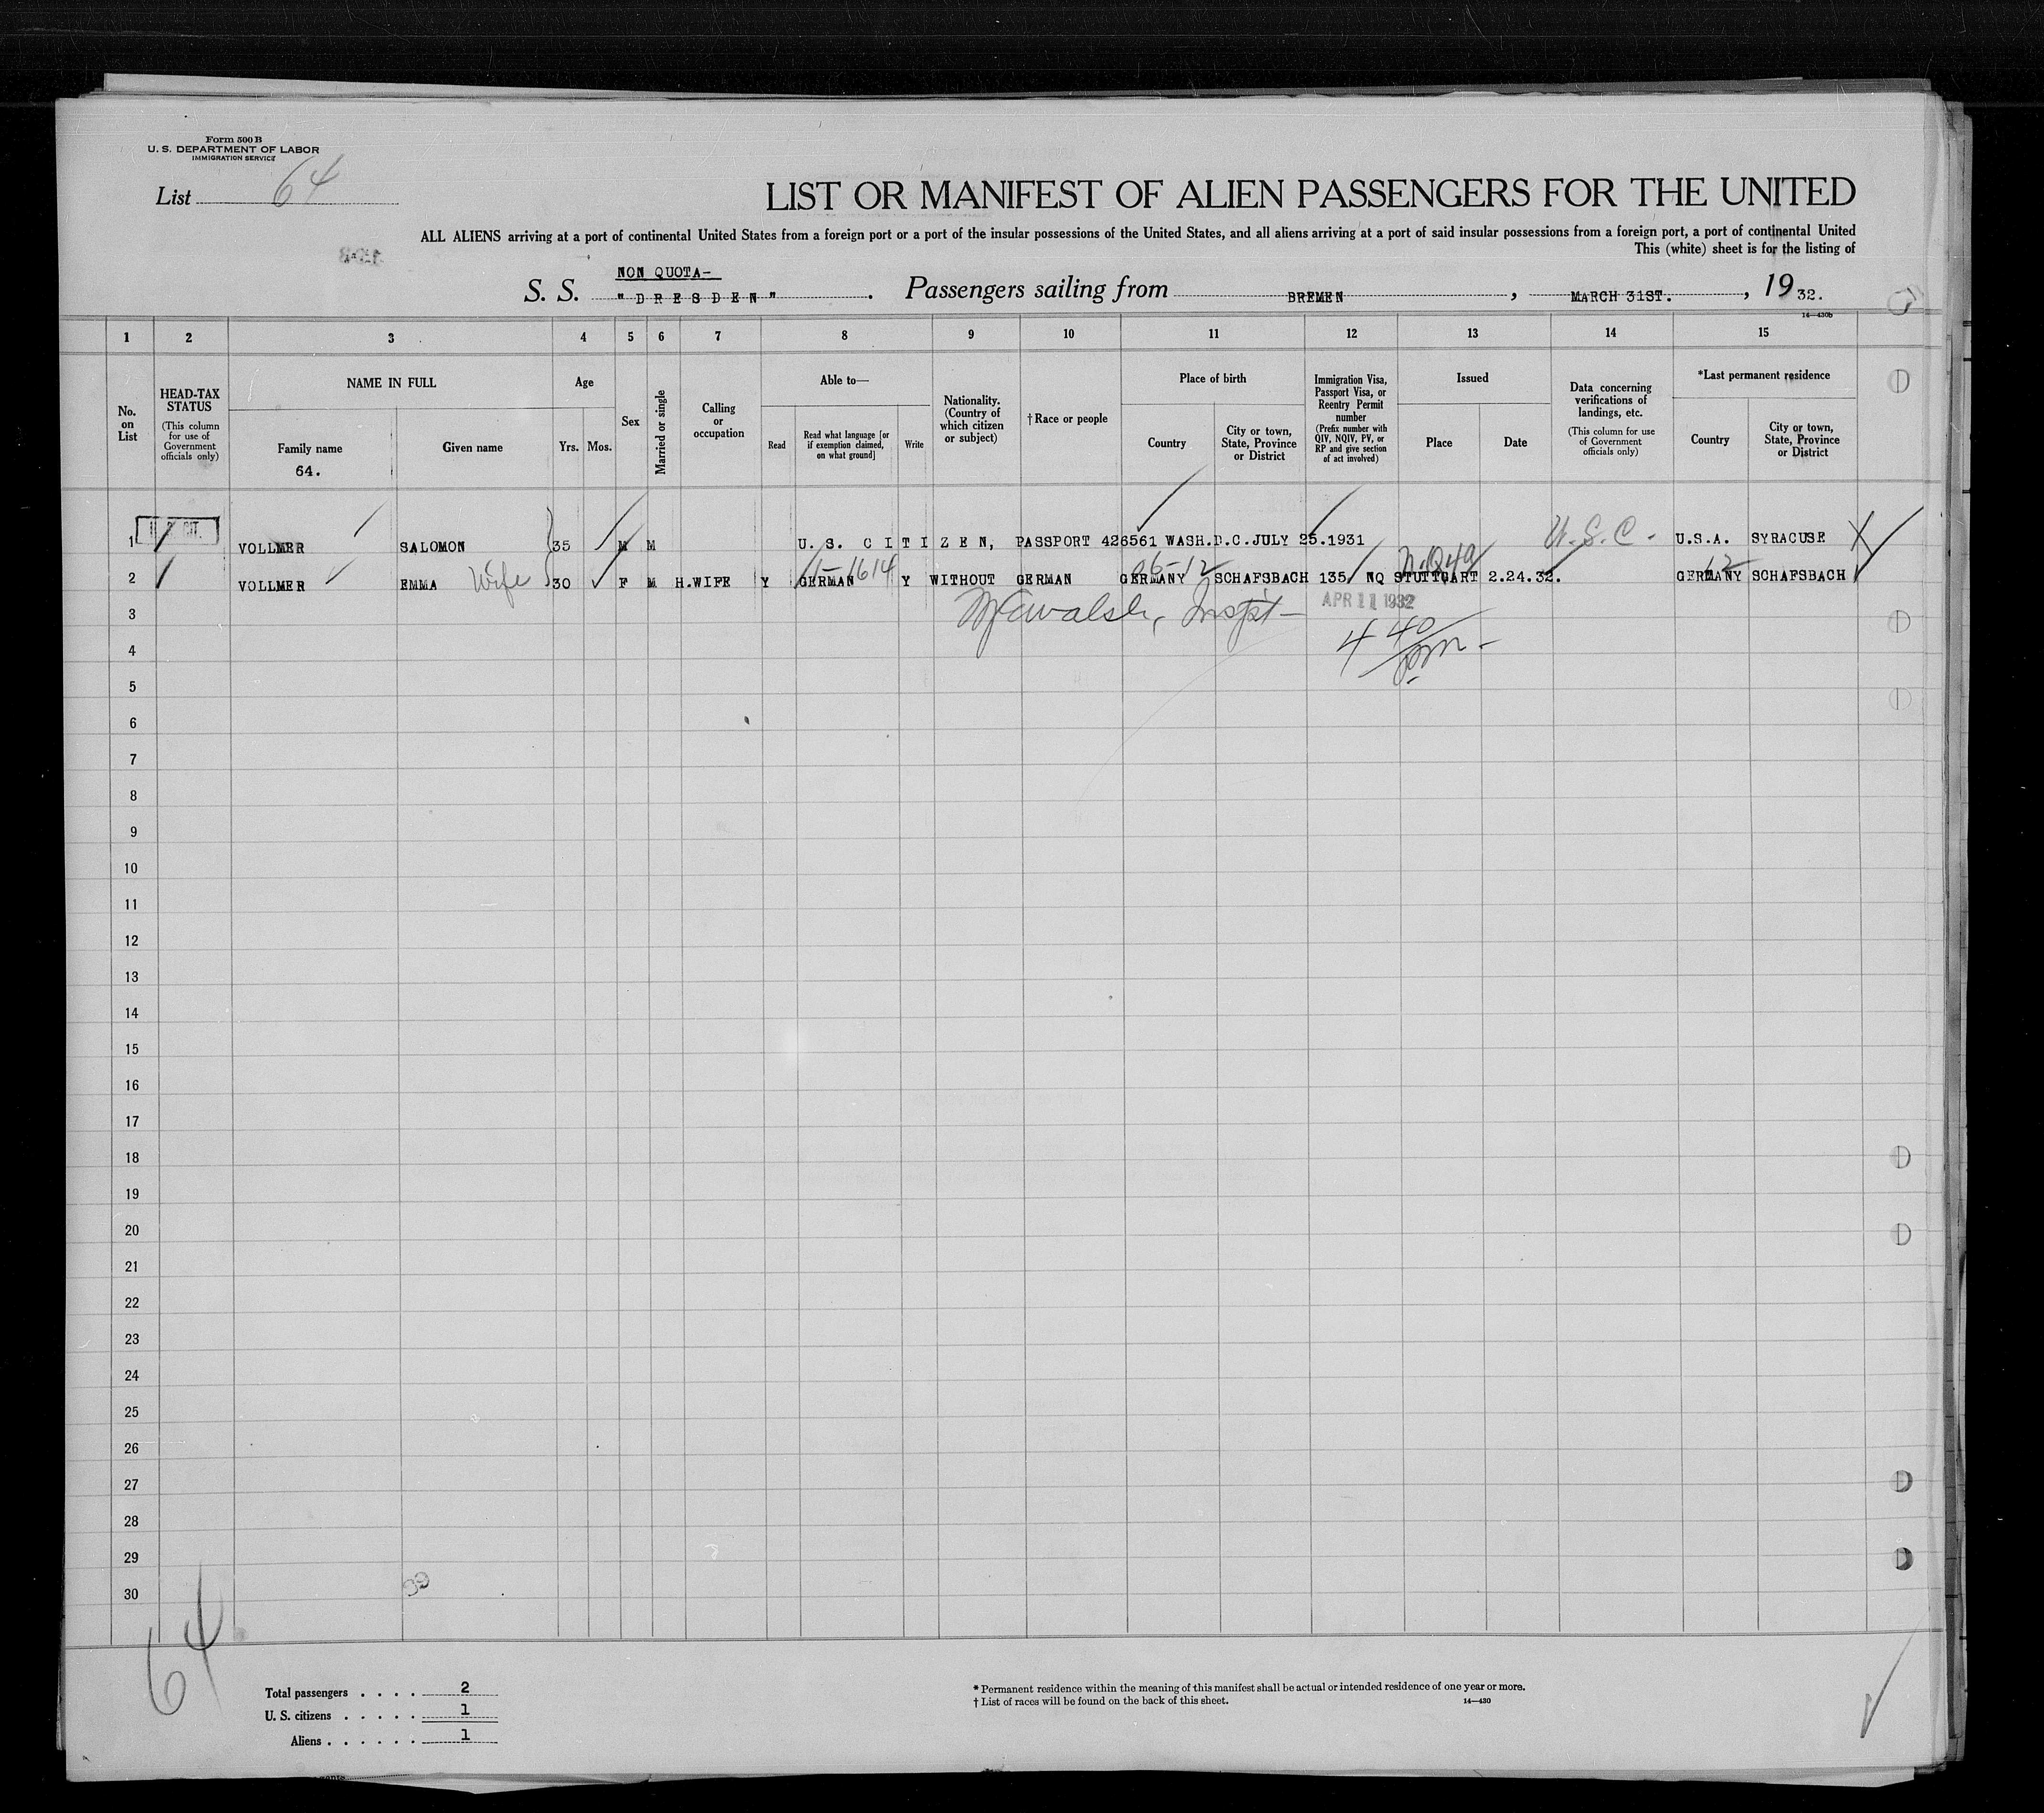 Form 500 B
U. S. DEPARTMENT OF LABOR
IMMIGRATION SERVICE
List 64
LIST OR MANIFEST OF ALIEN PASSENGERS FOR THE UNITED
ALL ALIENS arriving at a port of continental United States from a foreign port or a port of the insular possessions of the United States, and all aliens arriving at a port of said insular possessions from a foreign port, a port of continental United
This (white) sheet is for the listing of
NON QUOTA-
S. S. "DRESDEN". Passengers sailing from BREMEN, MARCH 31ST., 1932.
14—430b
1 2 3 4 5 6 7 8 9 10 11 12 13 14 15
No. on List
HEAD-TAX STATUS
(This column for use of Government officials only)
NAME IN FULL
Family name
64.
Given name
Age
Yrs. Mos.
Sex
Married or single
Calling or occupation
Able to—
Read
Read what language [or if exemption claimed, on what ground]
Write
Nationality. (Country of which citizen or subject)
†Race or people
Place of birth
Country
City or town, State, Province or District
Immigration Visa, Passport Visa, or Reentry Permit number
(Prefix number with QIV, NQIV, PV, or RP and give section of act involved)
Issued
Place
Date
Data concerning verifications of landings, etc.
(This column for use of Government officials only)
*Last permanent residence
Country
City or town, State, Province or District
U.S.C.
1 VOLLMER SALOMON 35 M M U. S. CITIZEN, PASSPORT 426561 WASH.D.C.JULY 25.1931 U.S.A. SYRACUSE
1-1614 06-12 N.Q4a 12
2 VOLLMER EMMA Wife 30 F M H.WIFE Y GERMAN Y WITHOUT GERMAN GERMANY SCHAFSBACH 135 NQ STUTTGART 2.24.32. GERMANY SCHAFSBACH
APR 11 1932
3
4 4 40 pm -
5
6
7
8
9
10
11
12
13
14
15
16
17
18
19
20
21
22
23
24
25
26
27
28
29
30
64
Total passengers . . . . 2
U. S. citizens . . . . . 1
Aliens . . . . . . 1
* Permanent residence within the meaning of this manifest shall be actual or intended residence of one year or more.
† List of races will be found on the back of this sheet.
14—430